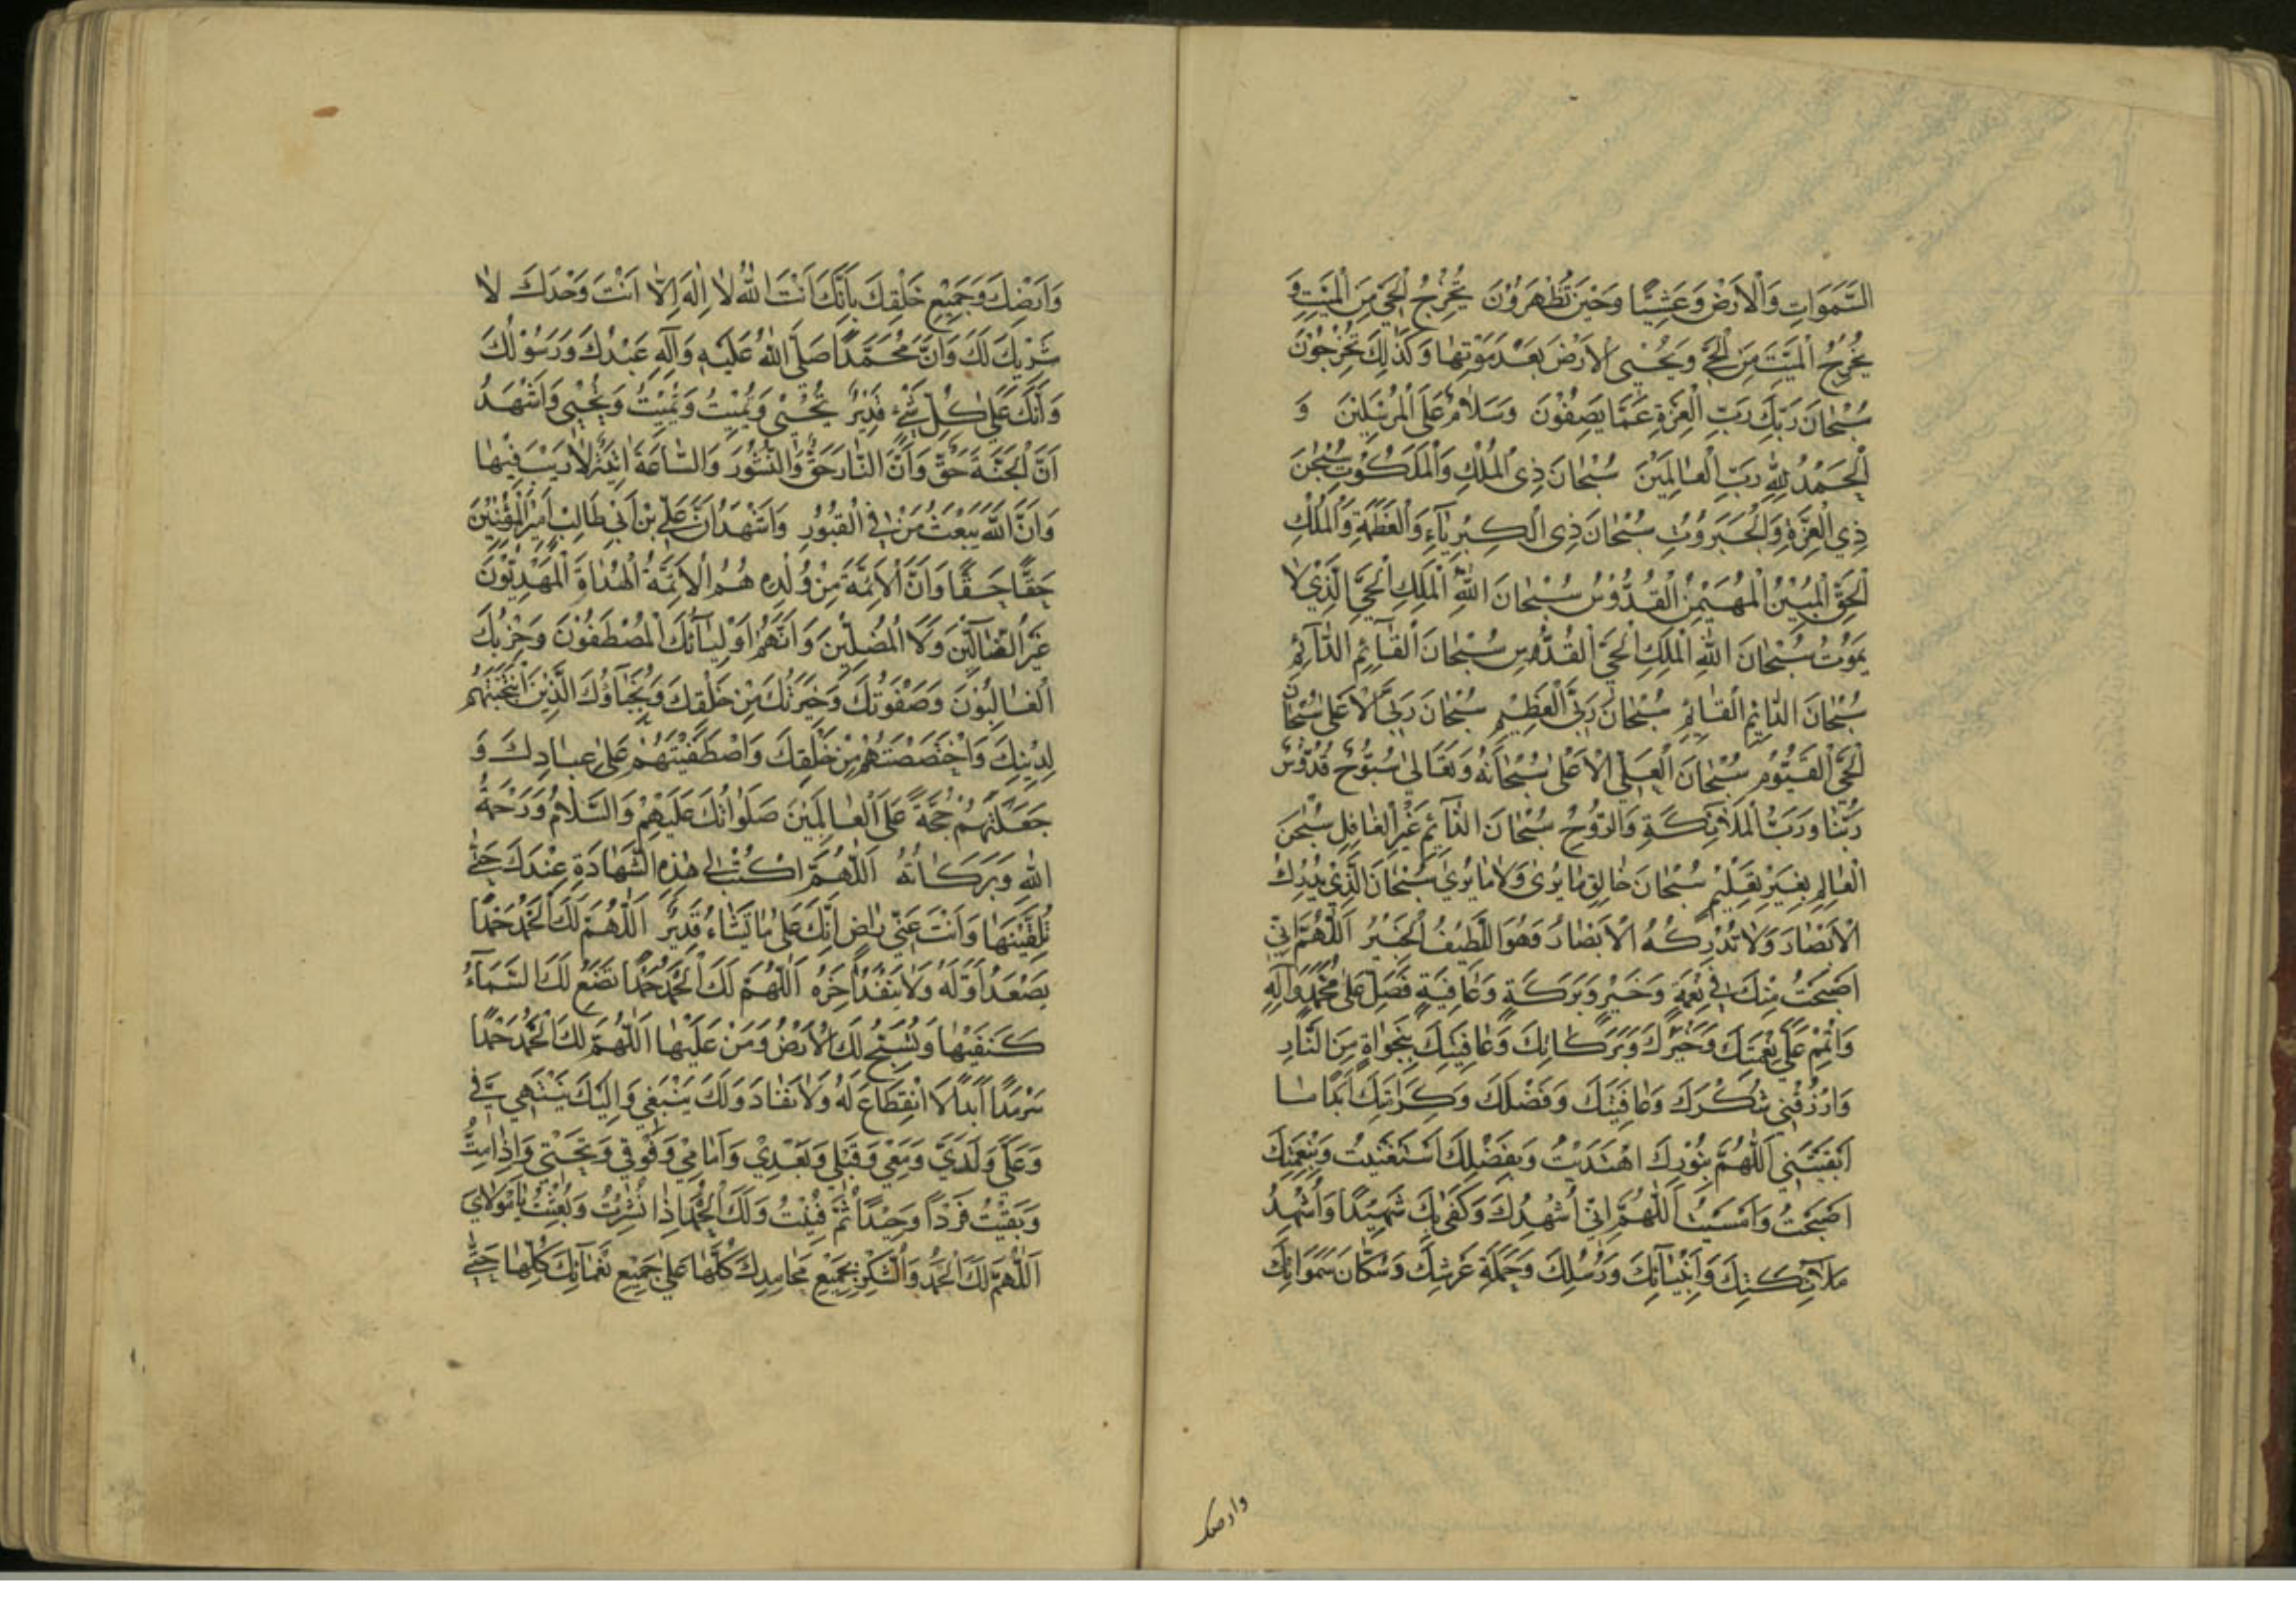 السَّمَوَاتِ وَالْاَرْضِ وَعَشِيًّا وَحِيْنَ تُظْهِرُوْنَ يُخْرِجُ الْحَيَّ مِنَ الْمَيِّتِ وَ
يُخْرِجُ الْمَيِّتَ مِنَ الْحَيِّ وَيُحْيِى الْاَرْضَ بَعْدَ مَوْتِهَا وَكَذٰلِكَ تُخْرَجُوْنَ
سُبْحَانَ رَبِّكَ رَبِّ الْعِزَّةِ عَمَّا يَصِفُوْنَ وَسَلَامٌ عَلَى الْمُرْسَلِيْنَ وَ
الْحَمْدُ لِلّٰهِ رَبِّ الْعَالَمِيْنَ سُبْحَانَ ذِى الْمُلْكِ وَالْمَلَكُوْتِ سُبْحٰنَ
ذِي الْعِزَّةِ وَالْجَبَرُوْتِ سُبْحَانَ ذِى الْكِبْرِيَآءِ وَالْعَظَمَةِ وَالْمُلْكِ
الْحَقِّ الْمُبِيْنِ الْمُهَيْمِنِ الْقُدُّوْسِ سُبْحَانَ اللّٰهِ الْمَلِكِ الْحَيِّ الَّذِيْ لَا
يَمُوْتُ سُبْحَانَ اللّٰهِ الْمَلِكِ الْحَيِّ الْقُدُّوْسِ سُبْحَانَ الْقَآئِمِ الدَّآئِمِ
سُبْحَانَ الدَّائِمِ الْقَائِمِ سُبْحَانَ رَبِّيَ الْعَظِيْمِ سُبْحَانَ رَبِّيَ الْاَعْلٰى سُبْحَانَ
الْحَيِّ الْقَيُّوْمِ سُبْحَانَ الْعَلِيِّ الْاَعْلٰى سُبْحَانَهُ وَتَعَالٰى سُبُّوْحٌ قُدُّوْسٌ
رَبُّنَا وَرَبُّ الْمَلَائِكَةِ وَالرُّوْحِ سُبْحَانَ الدَّآئِمِ غَيْرِ الْغَافِلِ سُبْحٰنَ
الْعَالِمِ بِغَيْرِ تَعْلِيْمٍ سُبْحَانَ خَالِقِ مَا يُرٰى وَلَا مَا يُرٰى سُبْحَانَ الَّذِيْ يُدْرِكُ
الْاَبْصَارَ وَلَا تُدْرِكُهُ الْاَبْصَارُ وَهُوَ اللَّطِيْفُ الْخَبِيْرُ اَللّٰهُمَّ اِنِّيْ
اَصْبَحْتُ مِنْكَ فِيْ نِعْمَةٍ وَخَيْرٍ وَبَرَكَةٍ وَعَافِيَةٍ فَصَلِّ عَلٰى مُحَمَّدٍ وَآلِهِ
وَاَتْمِمْ عَلَيَّ نِعْمَتَكَ وَخَيْرَكَ وَبَرَكَاتِكَ وَعَافِيَتَكَ بِنَجَوَاةٍ مِنَ النَّارِ
وَارْزُقْنِيْ شُكْرَكَ وَعَافِيَتَكَ وَفَضْلَكَ وَكِرَامَتَكَ اَبَدًا مَا
اَبْقَيْتَنِيْ اَللّٰهُمَّ بِنُوْرِكَ اهْتَدَيْتُ وَبِفَضْلِكَ اسْتَغْنَيْتُ وَبِنِعْمَتِكَ
اَصْبَحْتُ وَاَمْسَيْتُ اَللّٰهُمَّ اِنِّيْ اُشْهِدُكَ وَكَفٰى بِكَ شَهِيْدًا وَاُشْهِدُ
مَلَآئِكَتِكَ وَاَنْبِيَآئِكَ وَرُسُلِكَ وَحَمَلَةِ عَرْشِكَ وَسُكَّانَ سَمَوَاتِكَ
وارضک
وَاَرْضِكَ وَجَمِيْعِ خَلْقِكَ بِاَنَّكَ اَنْتَ اللّٰهُ لَا اِلٰهَ اِلَّا اَنْتَ وَحْدَكَ لَا
شَرِيْكَ لَكَ وَاَنَّ مُحَمَّدًا صَلَّى اللّٰهُ عَلَيْهِ وَآلِهِ عَبْدُكَ وَرَسُوْلُكَ
وَاَنَّكَ عَلٰى كُلِّ شَيْءٍ قَدِيْرٌ تُحْيِيْ وَتُمِيْتُ وَتُمِيْتُ وَتُحْيِيْ وَاَشْهَدُ
اَنَّ الْجَنَّةَ حَقٌّ وَاَنَّ النَّارَ حَقٌّ وَالنُّشُوْرَ وَالسَّاعَةَ اٰتِيَةٌ لَا رَيْبَ فِيْهَا
وَاَنَّ اللّٰهَ يَبْعَثُ مَنْ فِي الْقُبُوْرِ وَاَشْهَدُ اَنَّ عَلِيَّ بْنَ اَبِيْ طَالِبٍ اَمِيْرُ الْمُؤْمِنِيْنَ
حَقًّا حَقًّا وَاَنَّ الْاَئِمَّةَ مِنْ وُلْدِهِ هُمُ الْاَئِمَّةُ الْهُدَاةُ الْمَهْدِيُّوْنَ
غَيْرُ الضَّالِّيْنَ وَلَا الْمُضِلِّيْنَ وَاَنَّهُمْ اَوْلِيَآئُكَ الْمُصْطَفُوْنَ وَحِزْبُكَ
الْغَالِبُوْنَ وَصَفْوَتُكَ وَخِيَرَتُكَ مِنْ خَلْقِكَ وَنُجَبَآؤُكَ الَّذِيْنَ انْتَجَبْتَهُمْ
لِدِيْنِكَ وَاخْتَصَصْتَهُمْ مِنْ خَلْقِكَ وَاصْطَفَيْتَهُمْ عَلٰى عِبَادِكَ وَ
جَعَلْتَهُمْ حُجَّةً عَلَى الْعَالَمِيْنَ صَلَوَاتُكَ عَلَيْهِمْ وَالسَّلَامُ وَرَحْمَةُ
اللّٰهِ وَبَرَكَاتُهُ اَللّٰهُمَّ اكْتُبْ لِيْ هٰذِهِ الشَّهَادَةِ عِنْدَكَ حَتّٰى
تُلَقِّيَنِيْهَا وَاَنْتَ عَنِّيْ رَاضٍ اِنَّكَ عَلٰى مَا تَشَاءُ قَدِيْرٌ اَللّٰهُمَّ لَكَ الْحَمْدُ حَمْدًا
يَصْعَدُ اَوَّلُهُ وَلَا يَنْفَدُ اٰخِرُهُ اَللّٰهُمَّ لَكَ الْحَمْدُ حَمْدًا تَضَعُ لَكَ السَّمَآءُ
كَنَفَيْهَا وَتُسَبِّحُ لَكَ الْاَرْضُ وَمَنْ عَلَيْهَا اَللّٰهُمَّ لَكَ الْحَمْدُ حَمْدًا
سَرْمَدًا اَبَدًا لَا انْقِطَاعَ لَهُ وَلَا نَفَادَ وَلَكَ يَنْبَغِي وَاِلَيْكَ يَنْتَهِي فِيَّ
وَعَلَيَّ وَلَدَيَّ وَمَعِي وَقَبْلِي وَبَعْدِيْ وَاَمَامِيْ وَفَوْقِي وَتَحْتِي وَاِذَا مِتُّ
وَبَقِيْتُ فَرْدًا وَحِيْدًا ثُمَّ فَنِيْتُ وَلَكَ الْحَمْدُ اِذَا نُشِرْتُ وَبُعِثْتُ يَا مَوْلَايَ
اَللّٰهُمَّ لَكَ الْحَمْدُ وَالشُّكْرُ بِجَمِيْعِ مَحَامِدِكَ كُلِّهَا عَلٰى جَمِيْعِ نَعْمَآئِكَ كُلِّهَا حَتّٰى